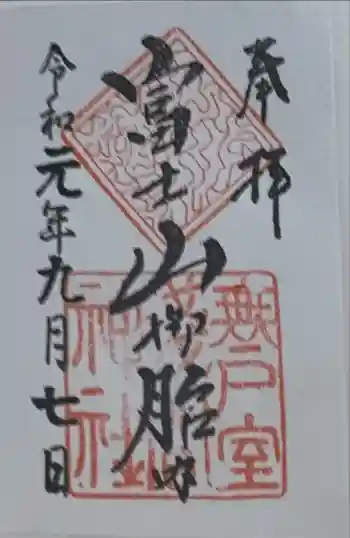 奉拝
富士山御胎内
令和元年九月七日
無戸室
神社